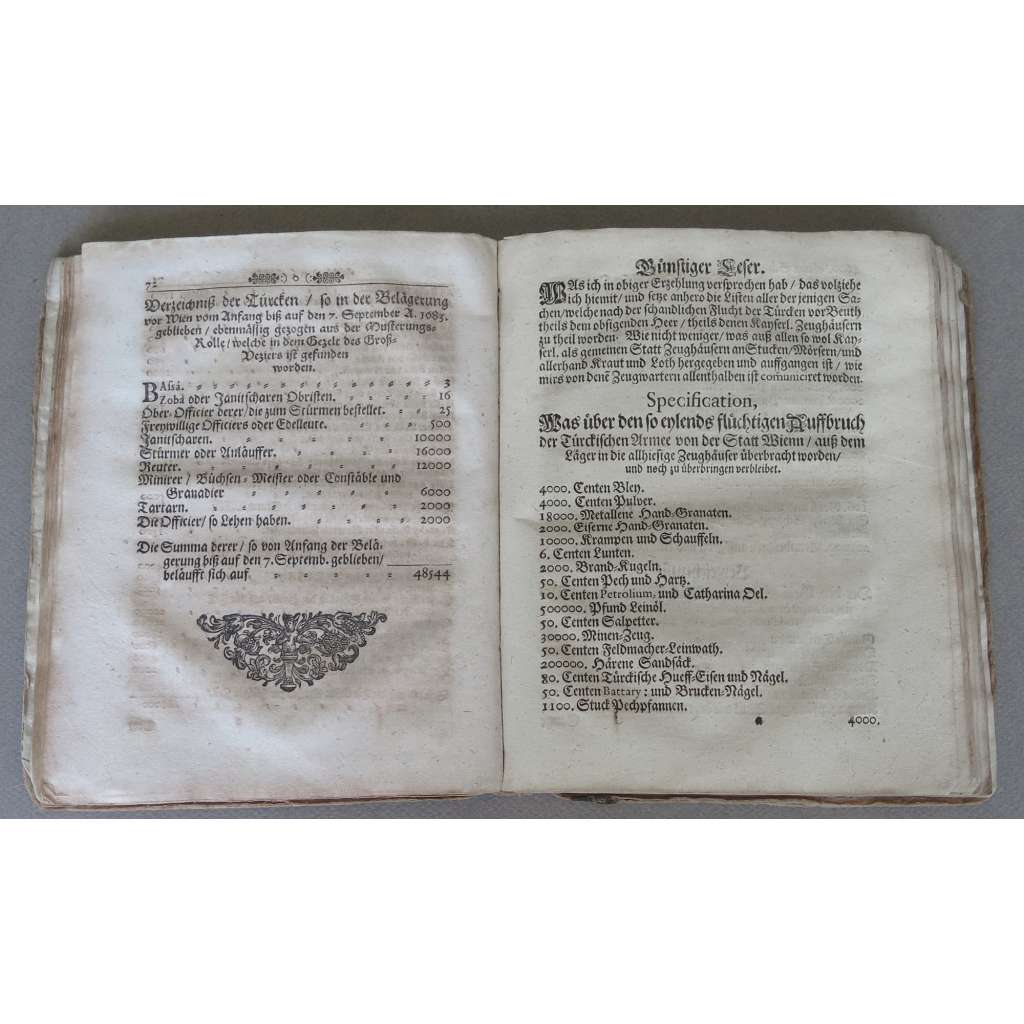 72
:) o (:
Verzeichniß der Türcken / so in der Belägerung
vor Wien vom Anfang biß auf den 7. September A. 1083.
geblieben / ebenmässig gezogen aus der Musterungs-
Rolle / welche in dem Gezelt des Groß-
Veziers ist gefunden
worden.
BAssá. 3
Zobá oder Janitscharen Obristen. 16
Ober-Officier derer / die zum Stürmen bestellet. 25
Freywillige Officiers oder Edelleute. 500
Janitscharen. 10000
Stürmer oder Anläuffer. 16000
Reuter. 12000
Minirer / Büchsen-Meister oder Constäble und
Granadier 6000
Tartarn. 2000
Die Officier / so Lehen haben. 2000
Die Summa derer / so von Anfang der Belä-
gerung biß auf den 7. Septemb. geblieben /
beläufft sich auf 48544
Günstiger Leser.
WAs ich in obiger Erzehlung versprochen hab / das volziehe
ich hiemit / und setze anhero die Listen aller der jenigen Sa-
chen / welche nach der schandlichen Flucht der Türcken vor Beuth
theils dem obsigenden Heer / theils denen Kayserl. Zeughäusern
zu theil worden. Wie nicht weniger / was auß allen so wol Kay-
serl. als gemeinen Statt Zeughäusern an Stucken / Mörsern / und
allerhand Kraut und Loth hergegeben und auffgangen ist / wie
mirs von denẽ Zeugwartern allenthalben ist comuniciret worden.
Specification,
Was über den so eylends flüchtigen Auffbruch
der Türckischen Armee von der Statt Wienn / auß dem
Läger in die allhiesige Zeughäuser überbracht worden /
und noch zu überbringen verbleibet.
4000. Centen Bley.
4000. Centen Pulver.
18000. Metallene Hand-Granaten.
2000. Eiserne Hand-Granaten.
10000. Krampen und Schauffeln.
6. Centen Lunten.
2000. Brand-Kugeln.
50. Centen Pech und Hartz.
10. Centen Petrolium, und Catharina Oel.
500000. Pfund Leinöl.
50. Centen Salpetter.
30000. Minen-Zeug.
50. Centen Feldmacher-Leinwath.
200000. Härene Sandsäck.
80. Centen Türckische Hueff-Eisen und Nägel.
50. Centen Battary: und Brucken-Nägel.
1100. Stuck Pechpfannen.
a 4000.